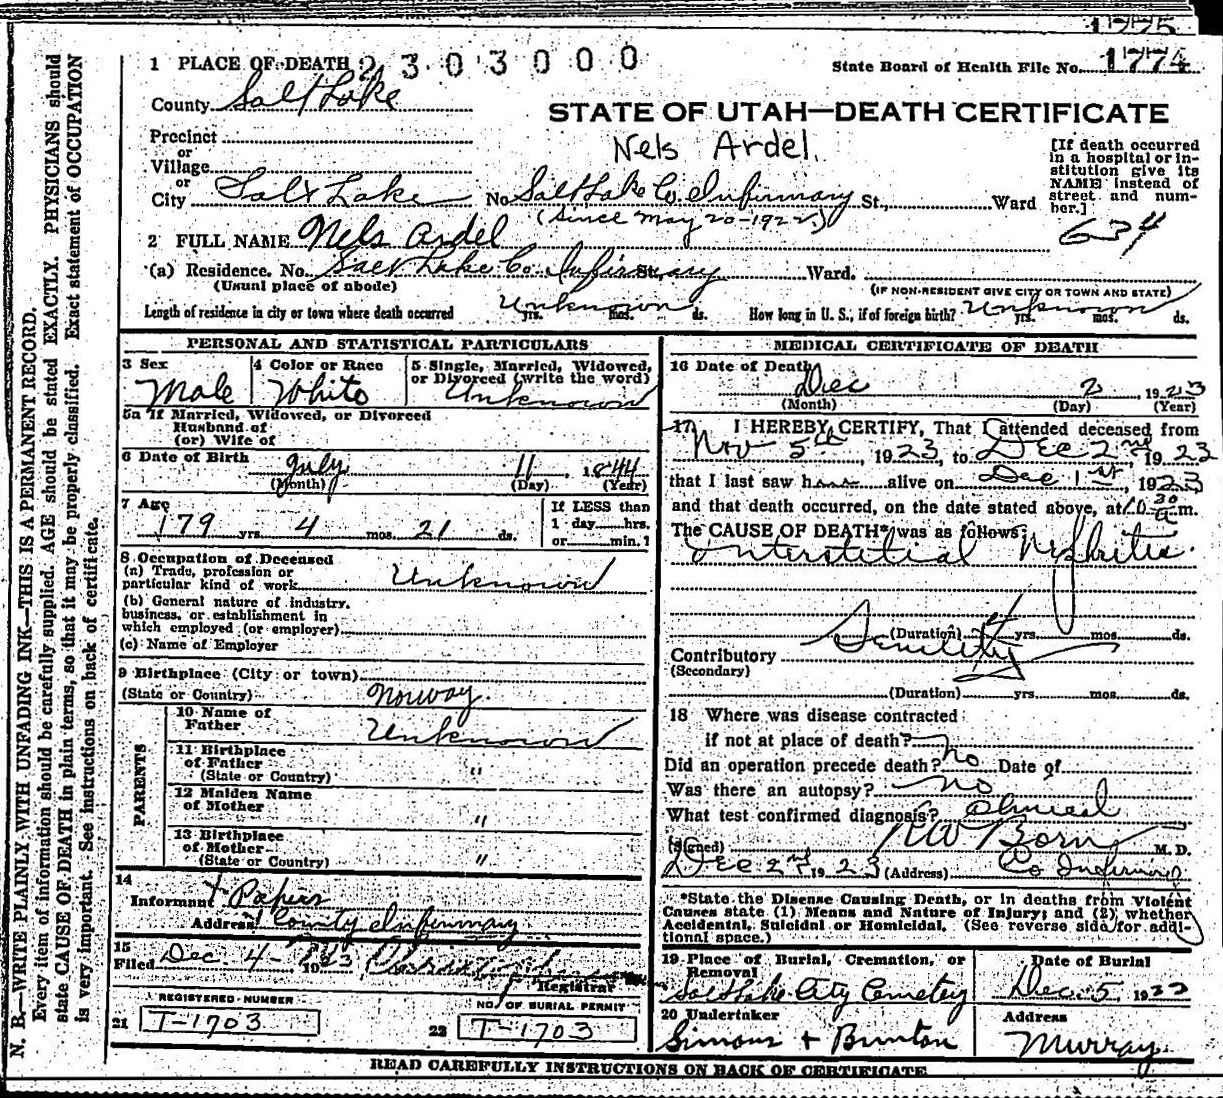 1775
1 PLACE OF DEATH 2303000
State Board of Health File No. 1774
County Salt Lake
STATE OF UTAH—DEATH CERTIFICATE
Precinct
or
Village
Nels Ardel.
[If death occurred in a hospital or institution give its NAME instead of street and number.]
or
City Salt Lake No. Salt Lake Co. Infirmary St., Ward
(Since May 20-1922)
634
2 FULL NAME Nels Ardel
(a) Residence. No. Salt Lake Co. Infirmary St., Ward.
(Usual place of abode) (IF NON-RESIDENT GIVE CITY OR TOWN AND STATE)
Length of residence in city or town where death occurred Unknown yrs. mos. ds. How long in U. S., if of foreign birth? Unknown yrs. mos. ds.
PERSONAL AND STATISTICAL PARTICULARS
3 Sex Male
4 Color or Race White
5 Single, Married, Widowed, or Divorced (write the word) Unknown
5a If Married, Widowed, or Divorced
Husband of
(or) Wife of
6 Date of Birth July 11, 1844
(Month) (Day) (Year)
7 Age 79 yrs. 4 mos. 21 ds.
If LESS than
1 day hrs.
or min. ?
8 Occupation of Deceased
(a) Trade, profession or
particular kind of work Unknown
(b) General nature of industry,
business, or establishment in
which employed (or employer)
(c) Name of Employer
9 Birthplace (City or town)
(State or Country) Norway.
PARENTS
10 Name of
Father Unknown
11 Birthplace
of Father "
(State or Country)
12 Maiden Name
of Mother "
13 Birthplace
of Mother
(State or Country) "
14
Informant Papers
Address County Infirmary
15
Filed Dec. 4- 1923
Registrar
REGISTERED NUMBER
21 T-1703
NO. OF BURIAL PERMIT
22 T-1703
MEDICAL CERTIFICATE OF DEATH
16 Date of Death
Dec 2, 1923
(Month) (Day) (Year)
17 I HEREBY CERTIFY, That I attended deceased from
Nov 5th, 1923, to Dec 2nd 1923
that I last saw h alive on Dec 1st, 1923
and that death occurred, on the date stated above, at 10 30 a m.
The CAUSE OF DEATH* was as follows:
Interstitial Nephritis.
(Duration) yrs. mos. ds.
Contributory Senility
(Secondary)
(Duration) yrs. mos. ds.
18 Where was disease contracted
if not at place of death?
Did an operation precede death? no Date of
Was there an autopsy? no
What test confirmed diagnosis? Clinical
(Signed) RW Born M. D.
Dec 2nd 1923 (Address) Co Infirmary
*State the Disease Causing Death, or in deaths from Violent
Causes state (1) Means and Nature of Injury; and (2) whether
Accidental, Suicidal or Homicidal. (See reverse side for addi-
tional space.)
19 Place of Burial, Cremation, or
Removal
Salt Lake City Cemetery
Date of Burial
Dec. 5 1923
20 Undertaker
Simons + Brunton
Address
Murray.
READ CAREFULLY INSTRUCTIONS ON BACK OF CERTIFICATE
N. B.—WRITE PLAINLY, WITH UNFADING INK—THIS IS A PERMANENT RECORD.
Every item of information should be carefully supplied. AGE should be stated EXACTLY. PHYSICIANS should
state CAUSE OF DEATH in plain terms, so that it may be properly classified. Exact statement of OCCUPATION
is very important. See instructions on back of certificate.